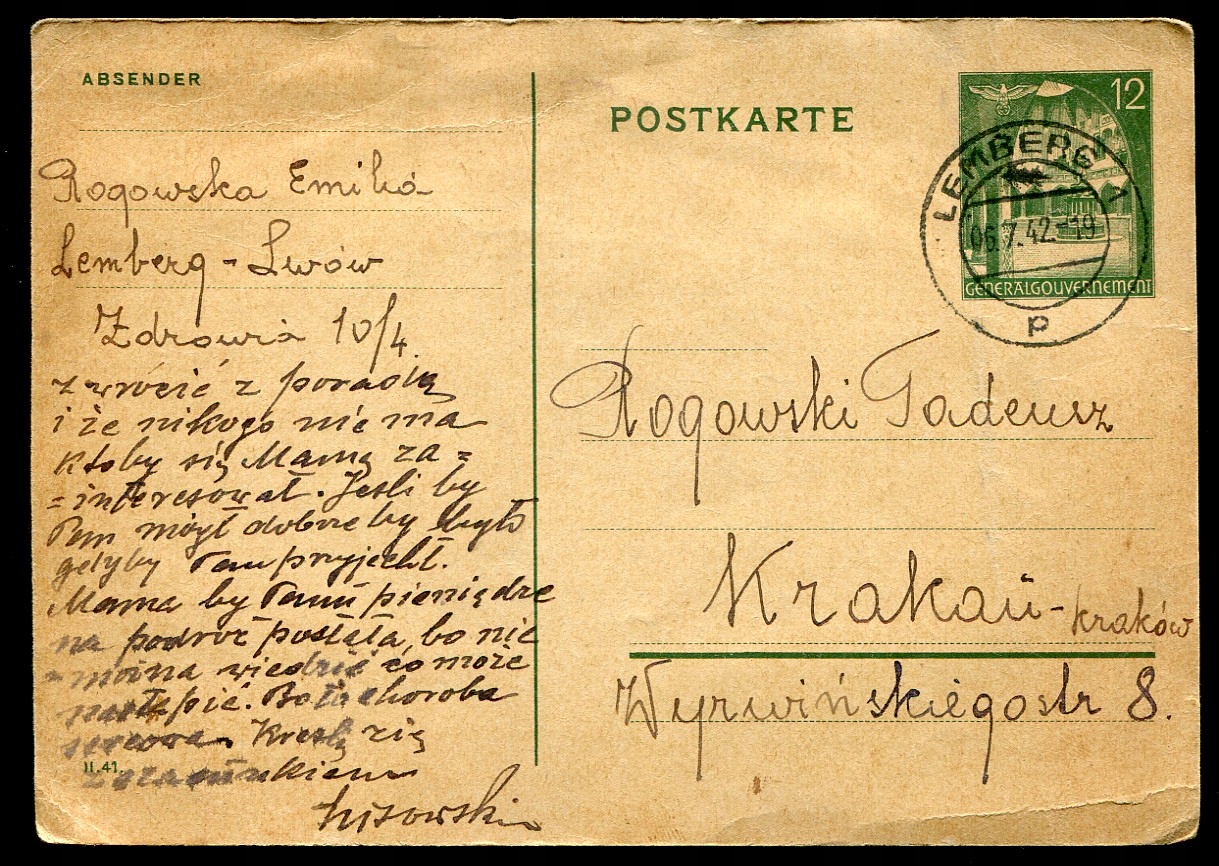 ABSENDER
Rogowska Emilia
Lemberg - Lwów
Zdrowia 10/4
zwrócić z poradą
i że nikogo nie ma
ktoby się Mamą za=
=interesował. Jeśli by
Pan mógł dobrze by było
gdyby Pan przyjechł.
Mama by Panu pieniądze
na podróż posłała, bo nie
można wiedzieć co może
nastąpić. Bo to choroba
Kreślę się
Lisowski
II.41.
POSTKARTE
12
GENERALGOUVERNEMENT
LEMBERG 1
06.7.42.-19
p
Rogowski Tadeusz
Krakau - Kraków
Wyrwińskiego str 8.